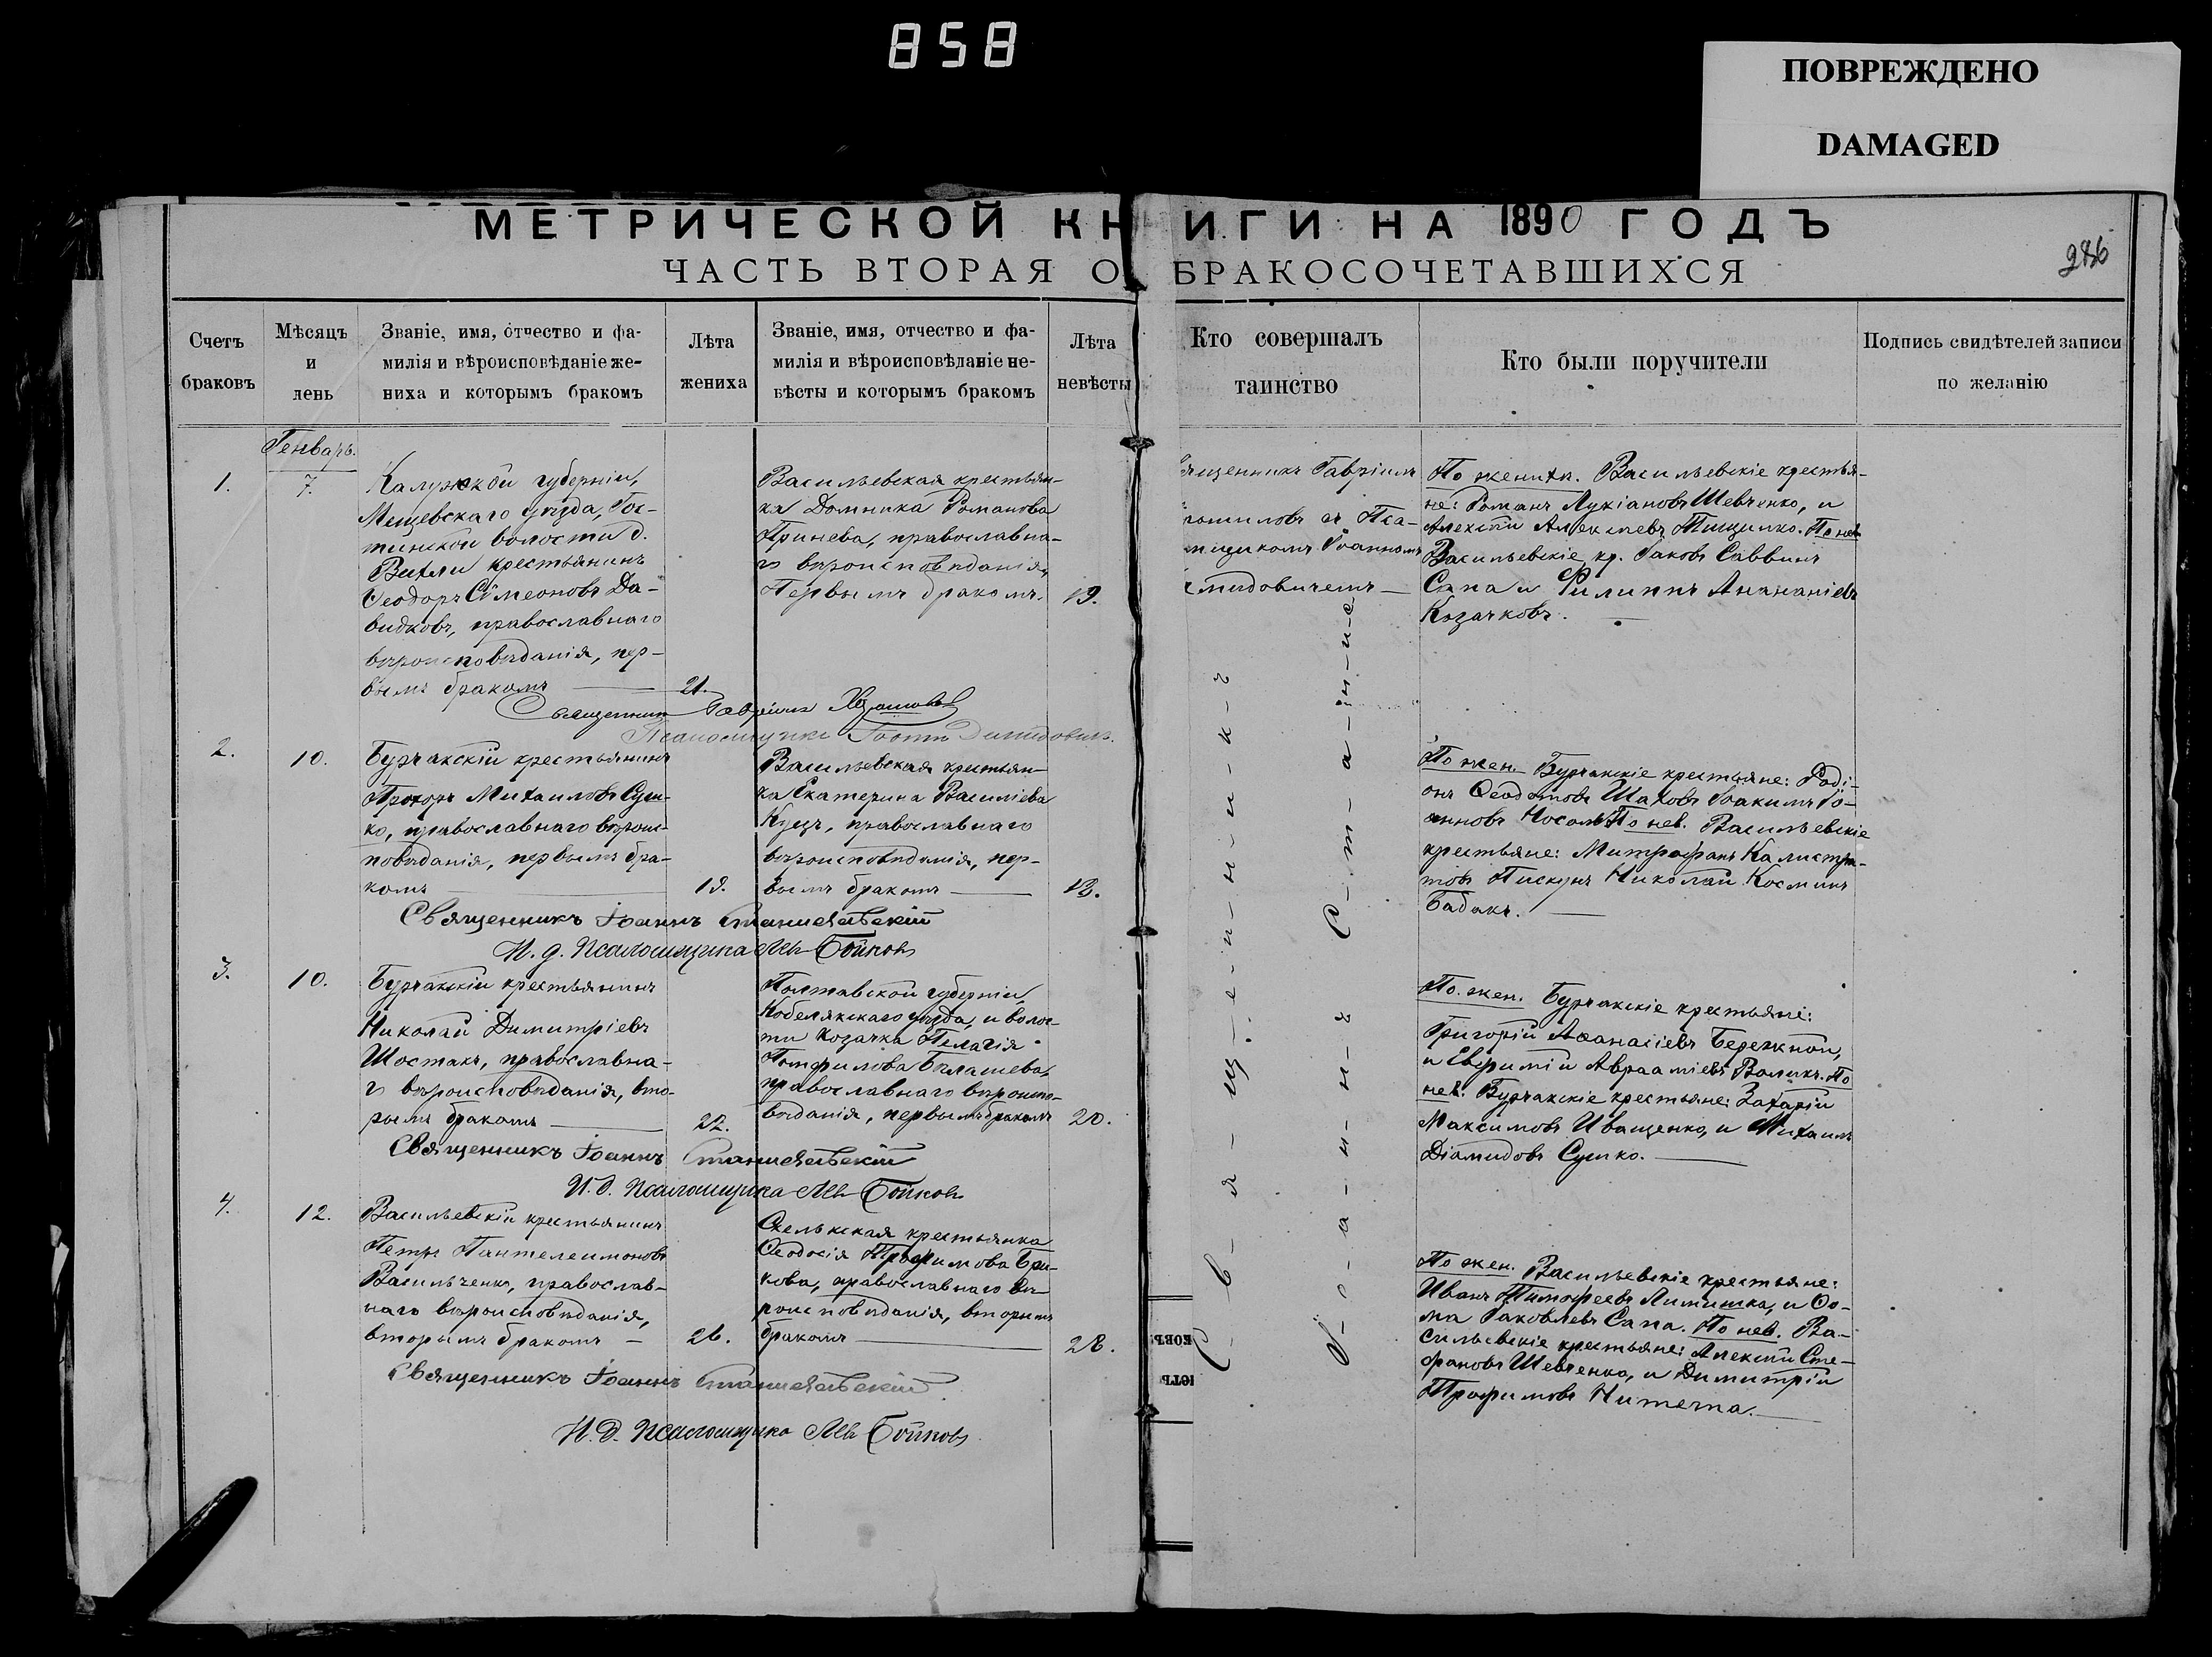 858
ПОВРЕЖДЕНО
DAMAGED
МЕТРИЧЕСКОЙ КНИГИ НА 1890 ГОДЪ
ЧАСТЬ ВТОРАЯ О БРАКОСОЧЕТАВШИХСЯ
286
Счетъ
браковъ
Мѣсяцъ
и
день
Званіе, имя, отчество и фа-
милія и вѣроисповѣданіе же-
ниха и которымъ бракомъ
Лѣта
жениха
Званіе, имя, отчество и фа-
милія и вѣроисповѣданіе не-
вѣсты и которымъ бракомъ
Лѣта
невѣсты
Кто совершалъ
таинство
Кто были поручители
Подпись свидѣтелей записи
по желанію
Генварь.
1.
7.
Калужской губерніи,
Мещевскаго уѣзда, Гос-
тинской волости д.
крестьянинъ
Ѳеодоръ Сѷмеоновъ Да-
видковъ, православнаго
вѣроисповѣданія, пер-
вымъ бракомъ —
21.
Васильевская крестьян-
ка Домника Романова
Гринева, православна-
го вѣроисповѣданія,
Первымъ бракомъ.
19.
священникъ Гавріилъ
съ Пса-
мщикомъ Іоанномъ
мидовичемъ —
По женихѣ. Васильевскіе крестья-
не: Романъ Лукіановъ Шевченко, и
Алексѣй Алексѣевъ Тищенко. По нев.
Васильевскіе кр. Іаковъ Саввинъ
Сапа и Филиппъ Анананіевъ
Козачковъ. —
Священникъ Гавріилъ
Псаломщикъ Іоаннъ Демидовичъ.
2.
10.
Бурчакскій крестьянинъ
Прохоръ Михаиловъ Суш-
ко, православнаго вѣроис-
повѣданія, первымъ бра-
комъ —
19.
Васильевская крестьян-
ка Екатерина Василіева
Куцъ, православнаго
вѣроисповѣданія, пер-
вымъ бракомъ —
18.
По жен. Бурчакскіе крестьяне: Роді-
онъ Ѳеодотовъ Шаховъ Іоакимъ Іо-
анновъ Носаль По нев. Васильевскіе
крестьяне: Митрофанъ Калистра-
товъ Пискунъ Николай Косминъ
Бабакъ. —
Священникъ Іоаннъ Станиславскій
И. д. Псаломщика Левъ Бойковъ
3.
10.
Бурчакскій крестьянинъ
Николай Димитріевъ
Шостакъ, православна-
го вѣроисповѣданія, вто-
рымъ бракомъ —
22.
Полтавской губерніи,
Кобелякскаго уѣзда, и волос-
ти козачка Пелагія
Балашева,
православнаго вѣроиспо-
вѣданія, первымъ бракомъ
20.
По жен. Бурчакскіе крестьяне:
Григорій Аѳанасіевъ Бережной,
и Евфимій Авраамієвъ Воликъ. По
нев. Бурчакскіе крестьяне: Захарій
Максимовъ Иващенко, и Михаилъ
Діамидовъ Сушко. —
Священникъ Іоаннъ Станиславскій
И. д. Псаломщика Левъ Бойковъ
4.
12.
Васильевскій крестьянинъ
Петръ Пантелеимоновъ
Васильченко, православ-
наго вѣроисповѣданія,
вторымъ бракомъ —
26.
Скельская крестьянка
Ѳеодосія Трофимова Бри-
кова, православнаго вѣ-
роисповѣданія, вторымъ
бракомъ —
28.
По жен. Васильевскіе крестьяне:
Иванъ Тимофеевъ и Ѳо-
ма Іаковлевъ Сапа. По нев. Ва-
сильевскіе крестьяне: Алексѣй Сте-
фановъ Шевченко, и Димитрій
Трофимовъ
Священникъ Іоаннъ Станиславскій
И. д. Псаломщика Левъ Бойковъ
С-в-я-щ-е-н-н-и-к-ъ
І-о-а-н-н-ъ С-т-а-